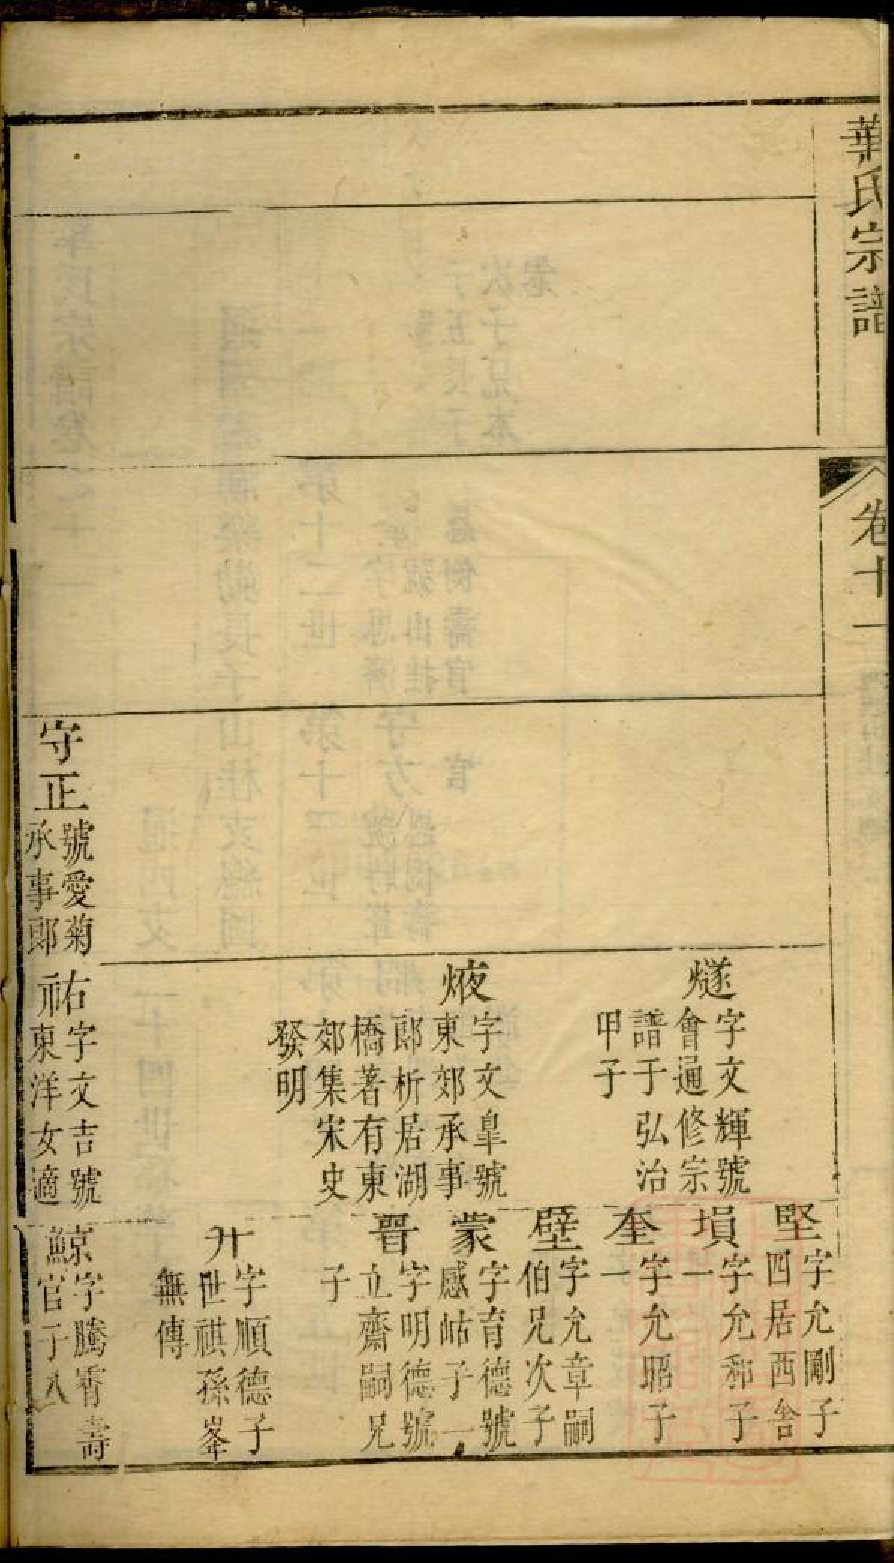 華氏宗譜
卷十一
守正
號愛菊
承事郎
燧
字文輝號
會通修宗
譜于弘治
甲子
焲
字文臯號
東郊承事
郎析居湖
橋著有東
郊集宋史
發明
祐
字文吉號
東洋女適
堅
字允剛子
四居西舍
塤
字允和子
一
奎
字允昭子
一
壁
字允章嗣
伯兄次子
蒙
字育德號
感岵子一
晉
字明德號
立齋嗣兄
子
升
字順德子
世祺孫峯
無傳
鯨
字騰霄壽
官子八